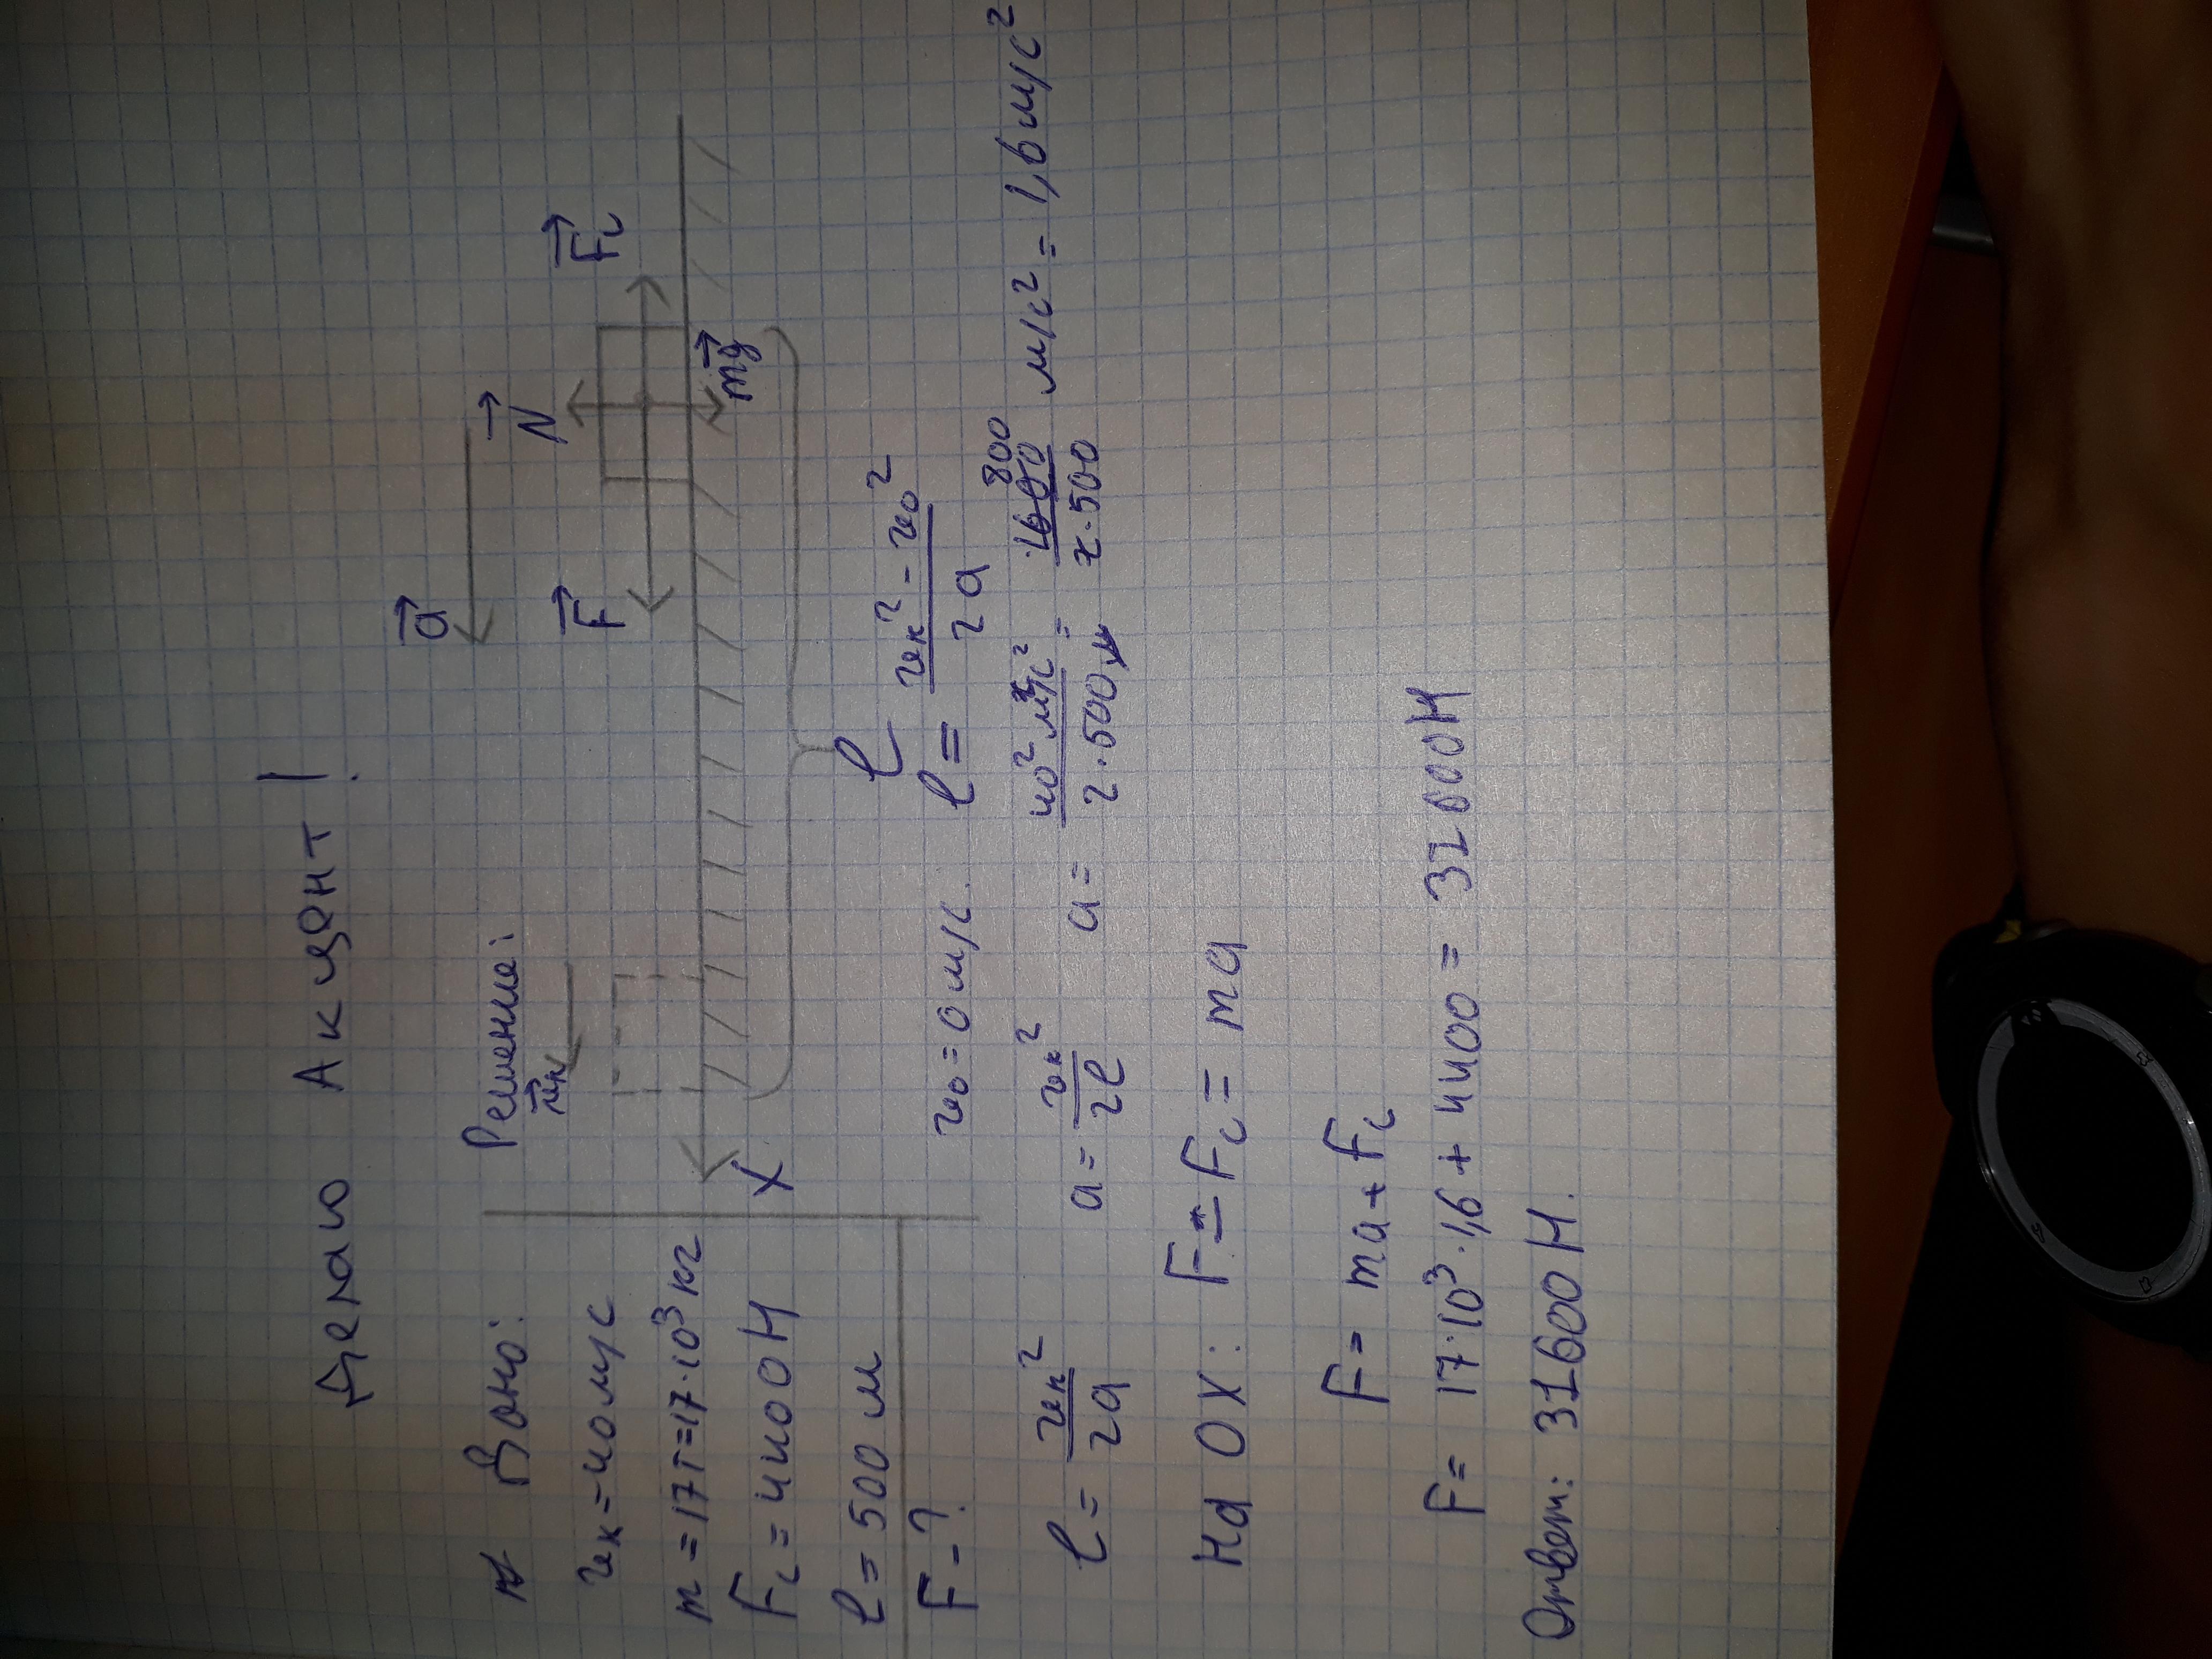 Делаю Акцент!
Дано:
Решение:
vк = 40 м/с
m = 17т = 17·10³ кг
Fc = 4400 Н
l = 500 м
F - ?
a
vк
F
N
Fc
mg
X
l
v₀ = 0 м/с. l = (vк² - v₀²)/2a
l = vк²/2a a = vк²/2l a = 40² м²/с²/2·500м = 1600/2·500 800 м/с² = 1,6 м/с²
На OX: F - Fc = ma
F = ma + Fc
F = 17·10³·1,6 + 4400 = 32000Н
Ответ: 31600 Н.